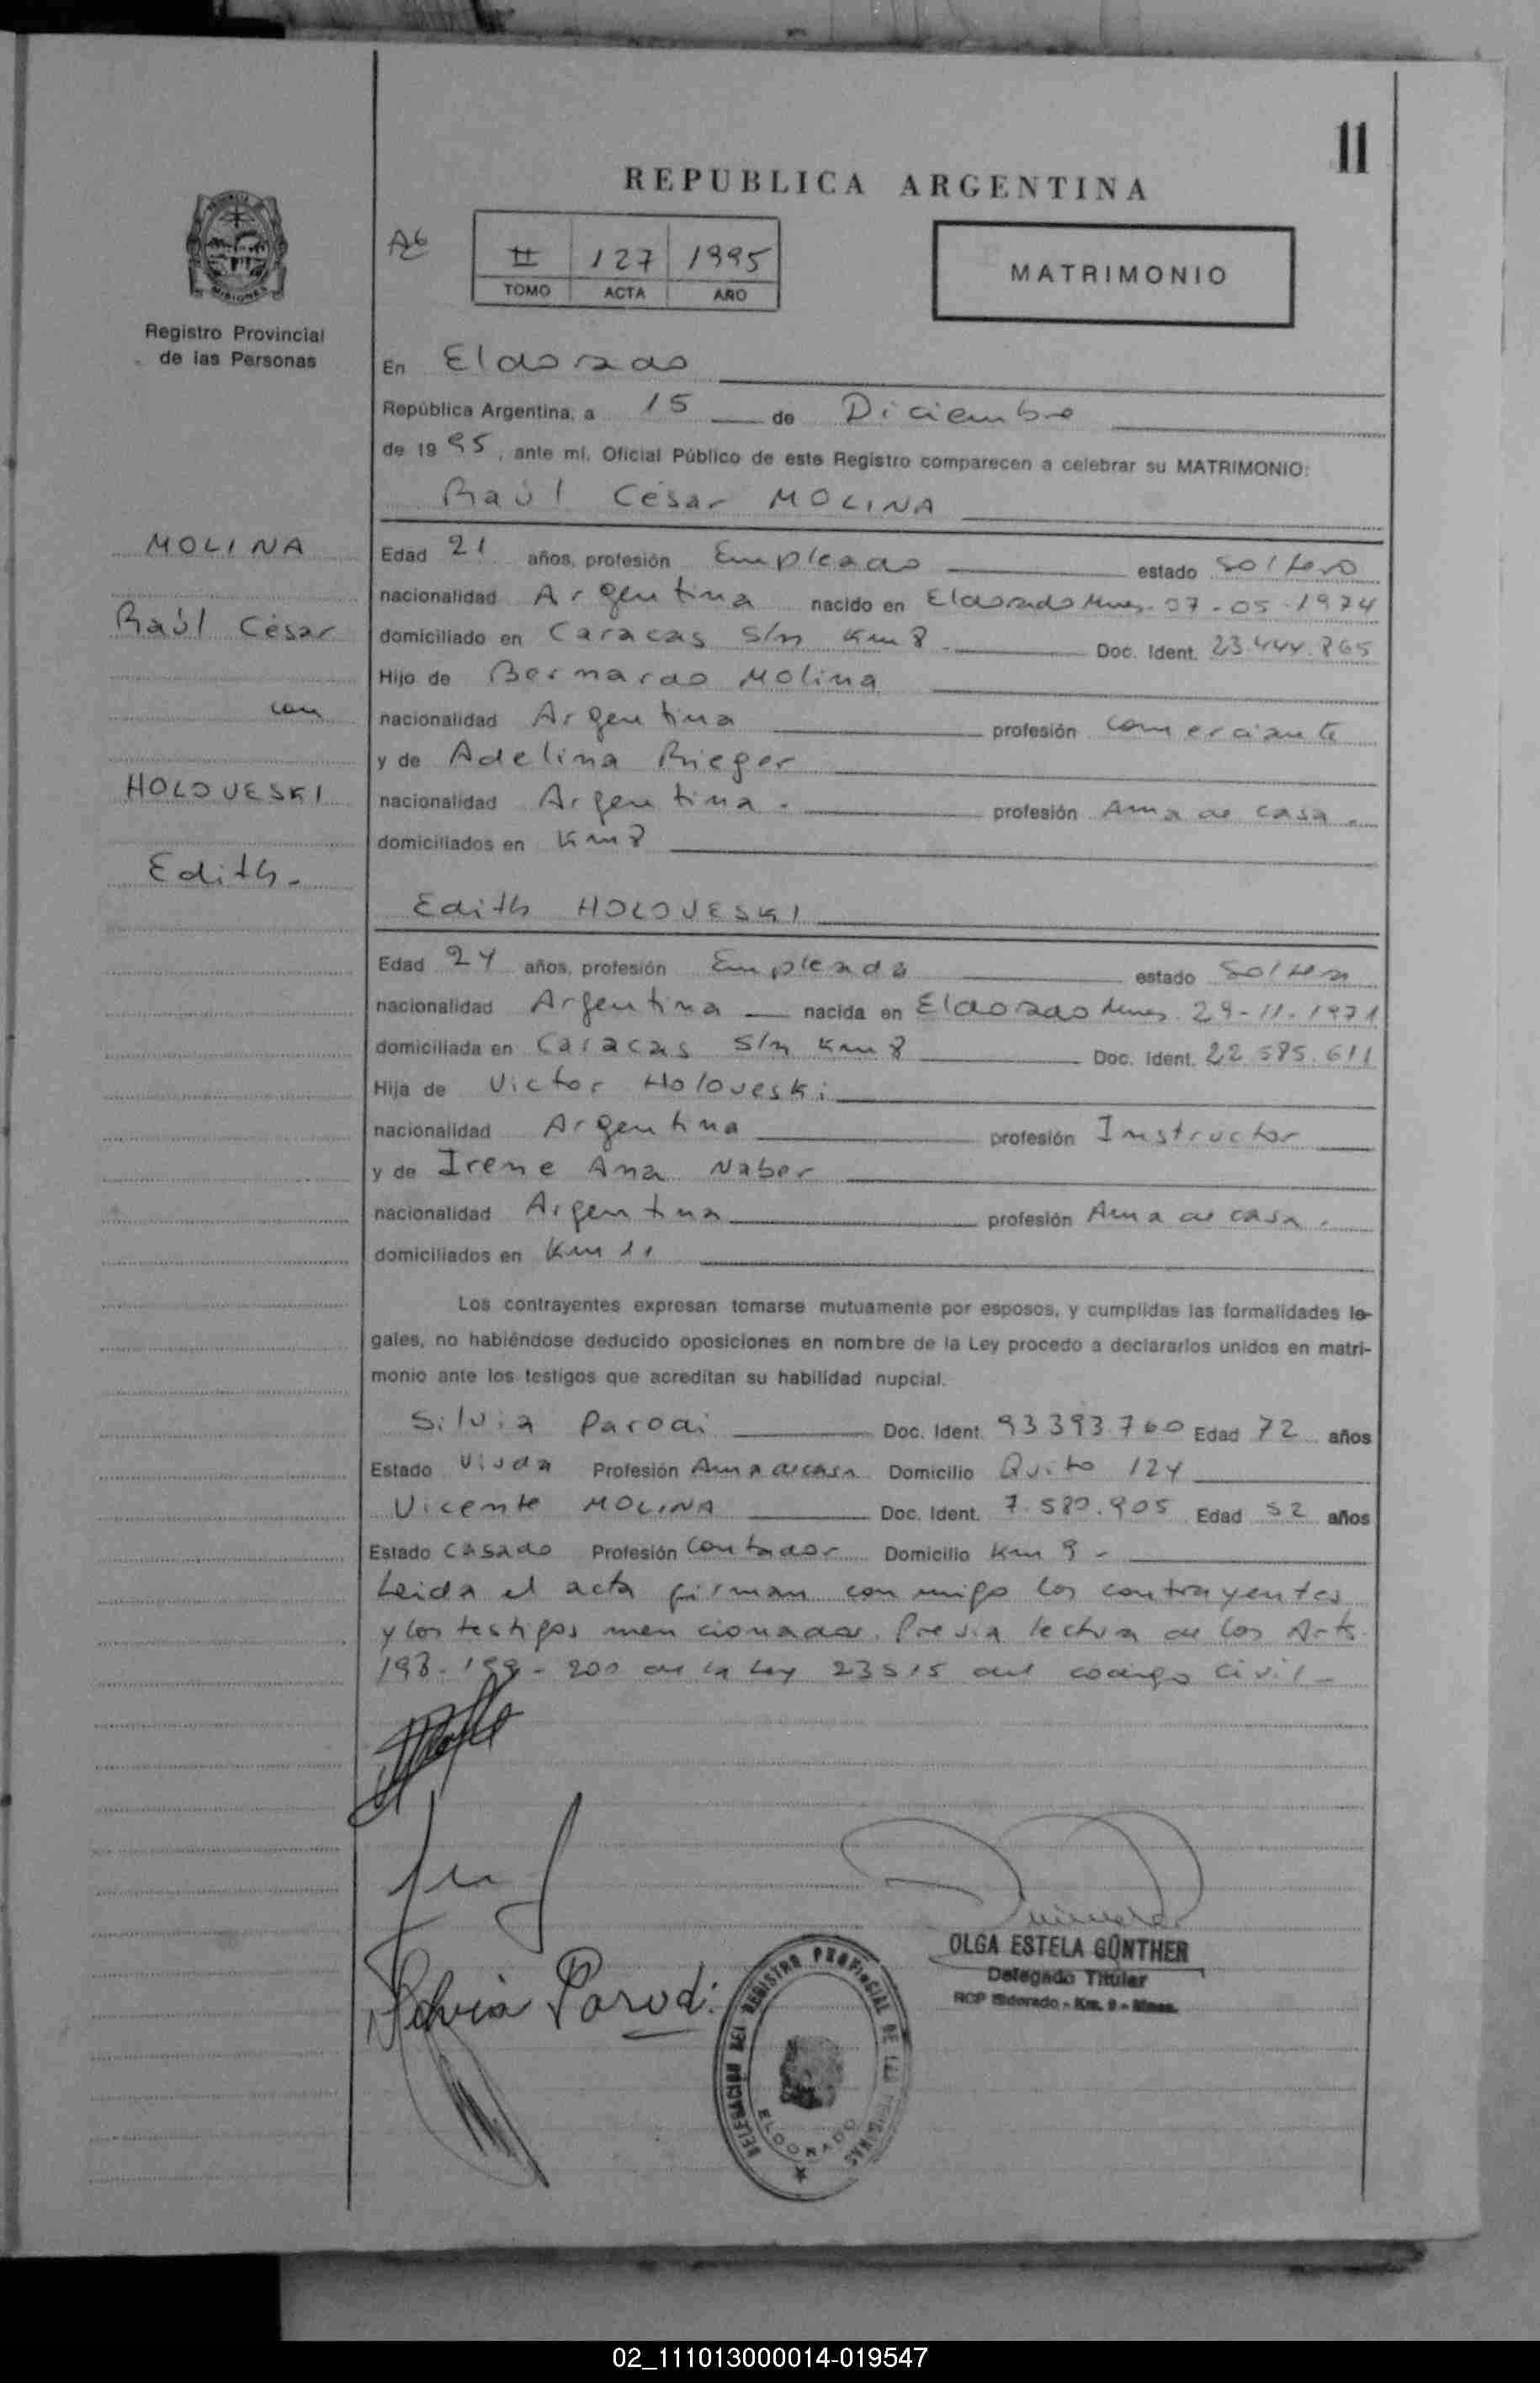 11
REPUBLICA ARGENTINA
A6
II 127 1995
TOMO ACTA AÑO
MATRIMONIO
Registro Provincial
de las Personas
En Eldorado
República Argentina, a 15 de Diciembre
de 1995, ante mí, Oficial Público de este Registro comparecen a celebrar su MATRIMONIO:
Raúl César MOLINA
MOLINA
Raúl César
con
HOLOVESKI
Edith.
Edad 21 años, profesión Empleado estado soltero
nacionalidad Argentina nacido en Eldorado Mnes. 07-05-1974
domiciliado en Caracas s/n Km 8 Doc. Ident. 23.444.865
Hijo de Bernardo Molina
nacionalidad Argentina profesión comerciante
y de Adelina Rieger
nacionalidad Argentina. profesión Ama de casa.
domiciliados en Km 8
Edith HOLOVESKI
Edad 24 años, profesión Empleada estado soltera
nacionalidad Argentina nacida en Eldorado Mnes. 29-11-1971
domiciliada en Caracas s/n Km 8 Doc. Ident. 22.585.611
Hija de Victor Holoveski
nacionalidad Argentina profesión Instructor
y de Irene Ana Naber
nacionalidad Argentina profesión Ama de casa.
domiciliados en Km 11
Los contrayentes expresan tomarse mutuamente por esposos, y cumplidas las formalidades le-
gales, no habiéndose deducido oposiciones en nombre de la Ley procedo a declararlos unidos en matri-
monio ante los testigos que acreditan su habilidad nupcial.
Silvia Parodi Doc. Ident. 93.393.760 Edad 72 años
Estado Viuda Profesión Ama de casa Domicilio Quito 124
Vicente MOLINA Doc. Ident. 7.580.905 Edad 52 años
Estado casado Profesión Contador Domicilio Km 9 -
Leida el acta firman conmigo los contrayentes
y los testigos mencionados. Previa lectura de los Arts.
198-199-200 de la Ley 23515 del código civil -
Silvia Parodi
OLGA ESTELA GÜNTHER
Delegado Titular
RCP Eldorado - Km. 9 - Mnes.
DELEGACION DEL REGISTRO PROVINCIAL DE LAS PERSONAS
ELDORADO
02_111013000014-019547